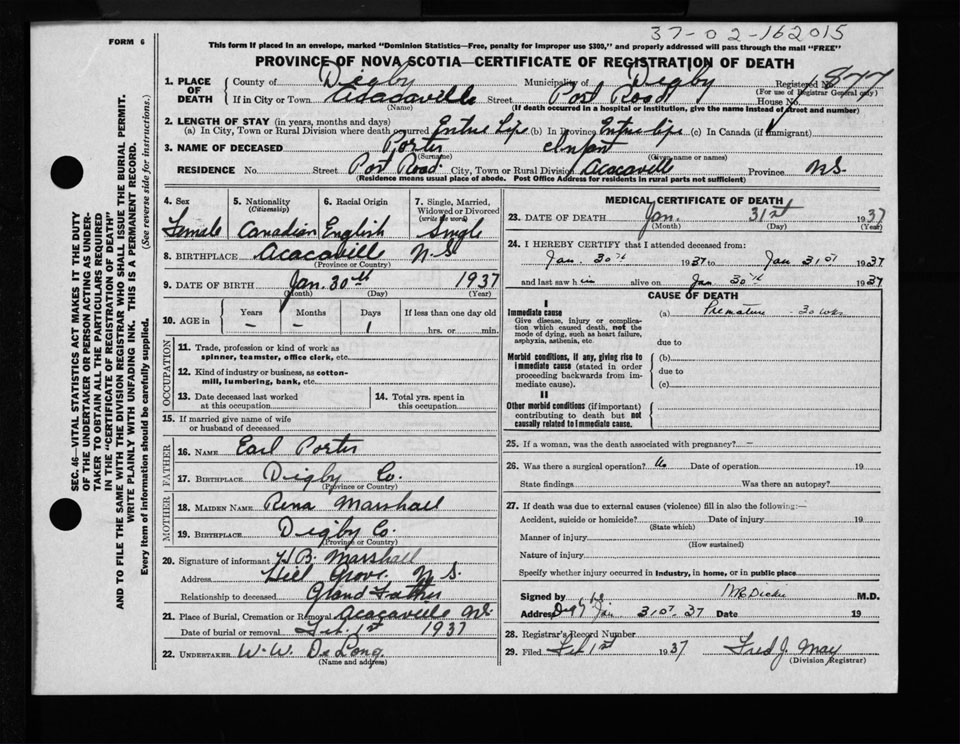 37-02-162015
FORM 6
This form if placed in an envelope, marked "Dominion Statistics—Free, penalty for improper use $300," and properly addressed will pass through the mail "FREE"
PROVINCE OF NOVA SCOTIA—CERTIFICATE OF REGISTRATION OF DEATH
1. PLACE OF DEATH
County of Digby Municipality of Digby Registered No. 877
(For use of Registrar General only)
If in City or Town Acacaville Street Post Road House No.
(Name) (If death occurred in a hospital or institution, give the name instead of street and number)
2. LENGTH OF STAY (in years, months and days)
(a) In City, Town or Rural Division where death occurred Entire Life (b) In Province Entire life (c) In Canada (if immigrant)
3. NAME OF DECEASED Porter Infant
(Surname) (Given name or names)
RESIDENCE No. Street Post Road City, Town or Rural Division Acacaville Province N.S.
(Residence means usual place of abode. Post Office Address for residents in rural parts not sufficient)
4. Sex
Female
5. Nationality
(Citizenship)
Canadian
6. Racial Origin
English
7. Single, Married, Widowed or Divorced
(write the word)
Single
8. BIRTHPLACE Acacavill N.S.
(Province or Country)
9. DATE OF BIRTH Jan. 30th 1937
(Month) (Day) (Year)
10. AGE in
Years Months Days If less than one day old
– – 1 hrs. or min.
OCCUPATION
11. Trade, profession or kind of work as spinner, teamster, office clerk, etc.
12. Kind of industry or business, as cotton-mill, lumbering, bank, etc.
13. Date deceased last worked at this occupation
14. Total yrs. spent in this occupation
15. If married give name of wife or husband of deceased
FATHER
16. NAME Earl Porter
17. BIRTHPLACE Digby Co.
(Province or Country)
MOTHER
18. MAIDEN NAME Rena Marshall
19. BIRTHPLACE Digby Co
(Province or Country)
20. Signature of informant H.B. Marshall
Address Hill Grove N.S.
Relationship to deceased Grand Father
21. Place of Burial, Cremation or Removal Acacaville N.S.
Date of burial or removal Feb. 1st 1937
22. UNDERTAKER W. W. DeLong
(Name and address)
MEDICAL CERTIFICATE OF DEATH
23. DATE OF DEATH Jan. 31st 1937
(Month) (Day) (Year)
24. I HEREBY CERTIFY that I attended deceased from:
Jan. 30th 1937 to Jan 31st 1937
and last saw him alive on Jan 30th 1937
CAUSE OF DEATH
I
Immediate cause
Give disease, injury or complication which caused death, not the mode of dying, such as heart failure, asphyxia, asthenia, etc.
(a) Premature - 30 wks
due to
Morbid conditions, if any, giving rise to immediate cause (stated in order proceeding backwards from immediate cause).
(b)
due to
(c)
II
Other morbid conditions (if important) contributing to death but not causally related to immediate cause.
25. If a woman, was the death associated with pregnancy? –
26. Was there a surgical operation? No Date of operation 19
State findings Was there an autopsy?
27. If death was due to external causes (violence) fill in also the following:—
Accident, suicide or homicide? Date of injury 19
(State which)
Manner of injury
(How sustained)
Nature of injury
Specify whether injury occurred in industry, in home, or in public place
Signed by Dickie M.D.
Address Digby Jan 31st 37 Date 19
28. Registrar's Record Number
29. Filed Feb 1st 1937 Fred J. May
(Division Registrar)
SEC. 46—VITAL STATISTICS ACT MAKES IT THE DUTY
OF THE UNDERTAKER OR PERSON ACTING AS UNDER-
TAKER TO OBTAIN ALL THE PARTICULARS REQUIRED
IN THE "CERTIFICATE OF REGISTRATION OF DEATH"
AND TO FILE THE SAME WITH THE DIVISION REGISTRAR WHO SHALL ISSUE THE BURIAL PERMIT.
WRITE PLAINLY WITH UNFADING INK. THIS IS A PERMANENT RECORD.
Every item of information should be carefully supplied. (See reverse side for instructions.)